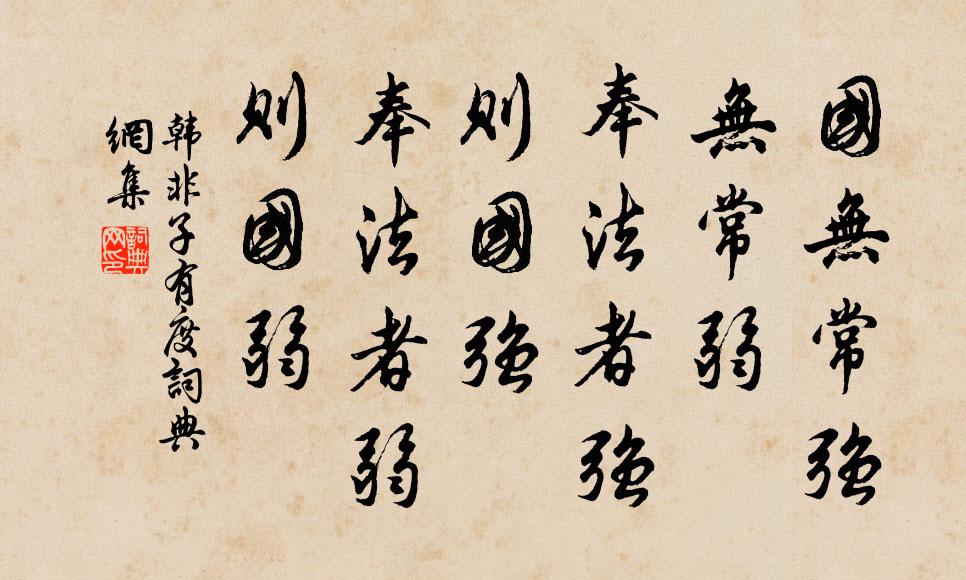 國無常強
無常弱
奉法者強
則國強
奉法者弱
則國弱
韩非子有度詞典
網集
詞典
网印